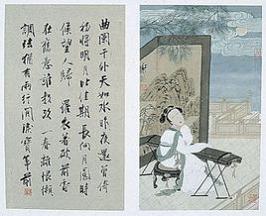 曲闌干外天如水昨夜還曾倚
初將明月比佳期長向月圓時
候望人歸 羅衣著破前香
在舊意誰教改一春離恨懶
調絃猶有兩行閒淚寶箏前